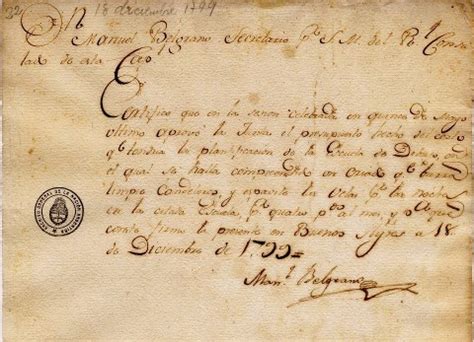 32
18 diciembre 1799
Dn
Manuel Belgrano Secretario pr S. M. del Rl Consu
lado de esta Capl
Certifico que en la sesion celebrada en quince de Mayo
ultimo aprovó la Junta el presupuesto hecho del
qe tendria la planificacion de la Escuela de Dibuxo, en
el qual se halla comprendido un criado qe
limpie
en la citada Escuela, pr quatro ps al mes, y pa qe
conste firmo la presente en Buenos Ayres a 18
de Diciembre de 1799
Manl Belgrano
ARCHIVO GENERAL DE LA NACION ARGENTINA